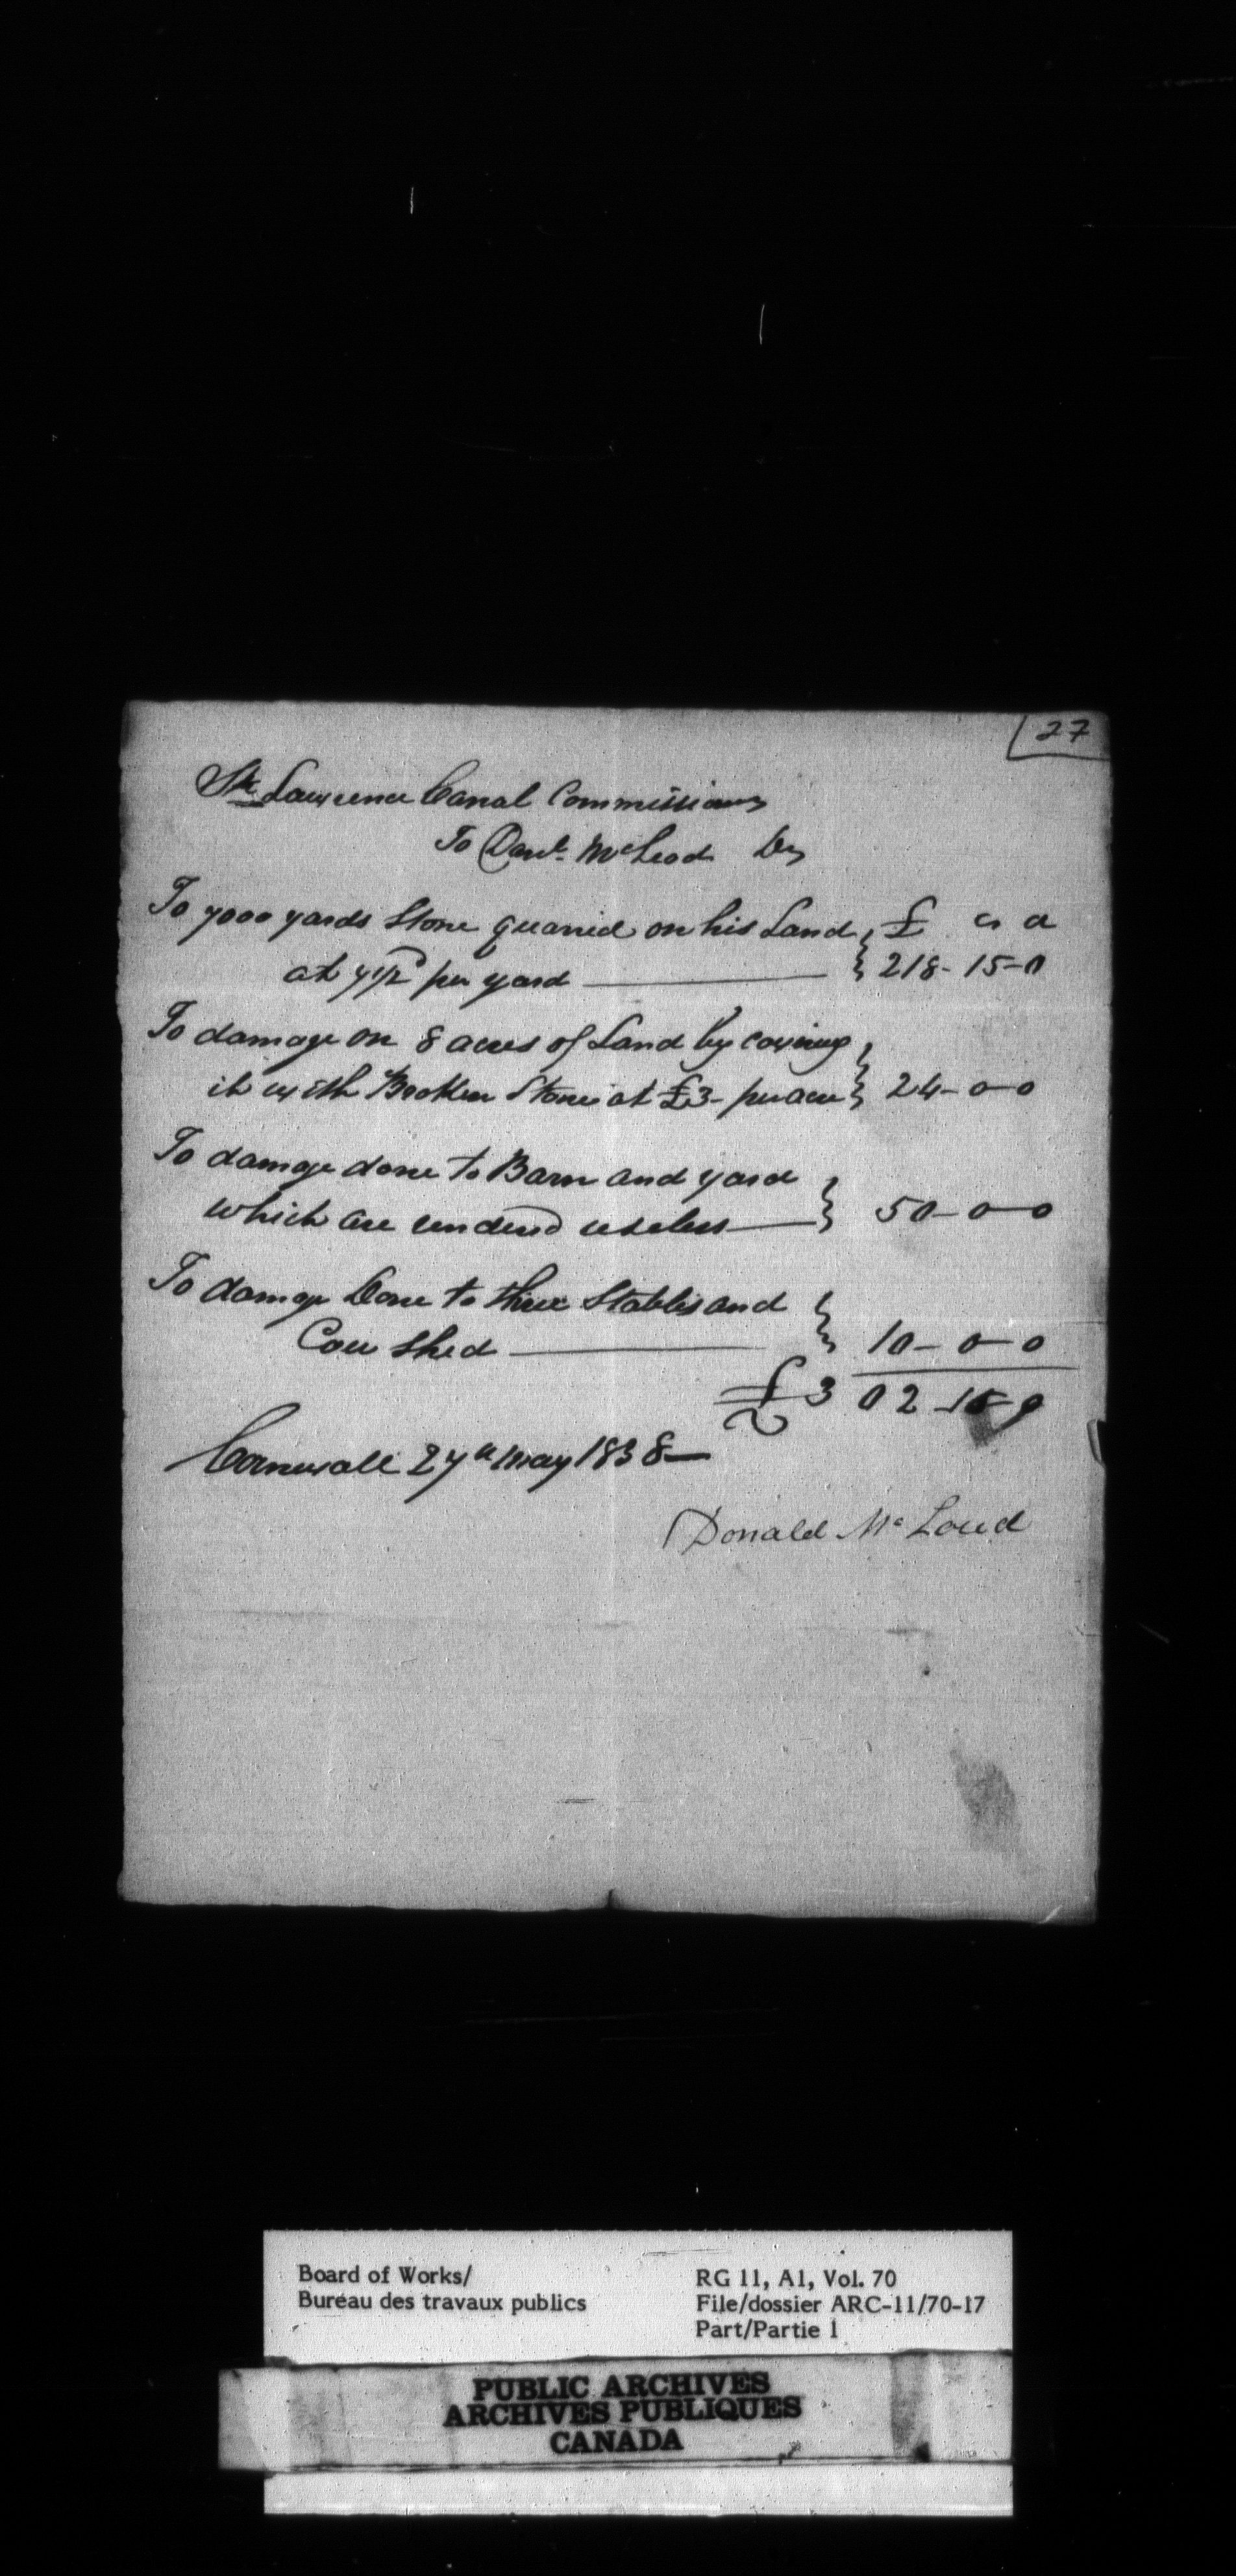 27
St Lawrence Canal Commissioners
To Donl. McLeod Dr
To 7000 yards Stone quarried on his Land } £ s d
at 7½d per yard — } 218-15-0
To damage on 8 acres of Land by covering
it with Broken Stone at £3- per acre } 24-0-0
To damage done to Barn and yard
which are renderd useless — } 50-0-0
To damage Done to three Stables and
Cow Shed — } 10-0-0
£302-15-0
Cornwall 27th May 1838—
Donald McLoud
Board of Works/
Bureau des travaux publics
RG 11, A1, Vol. 70
File/dossier ARC-11/70-17
Part/Partie 1
PUBLIC ARCHIVES
ARCHIVES PUBLIQUES
CANADA